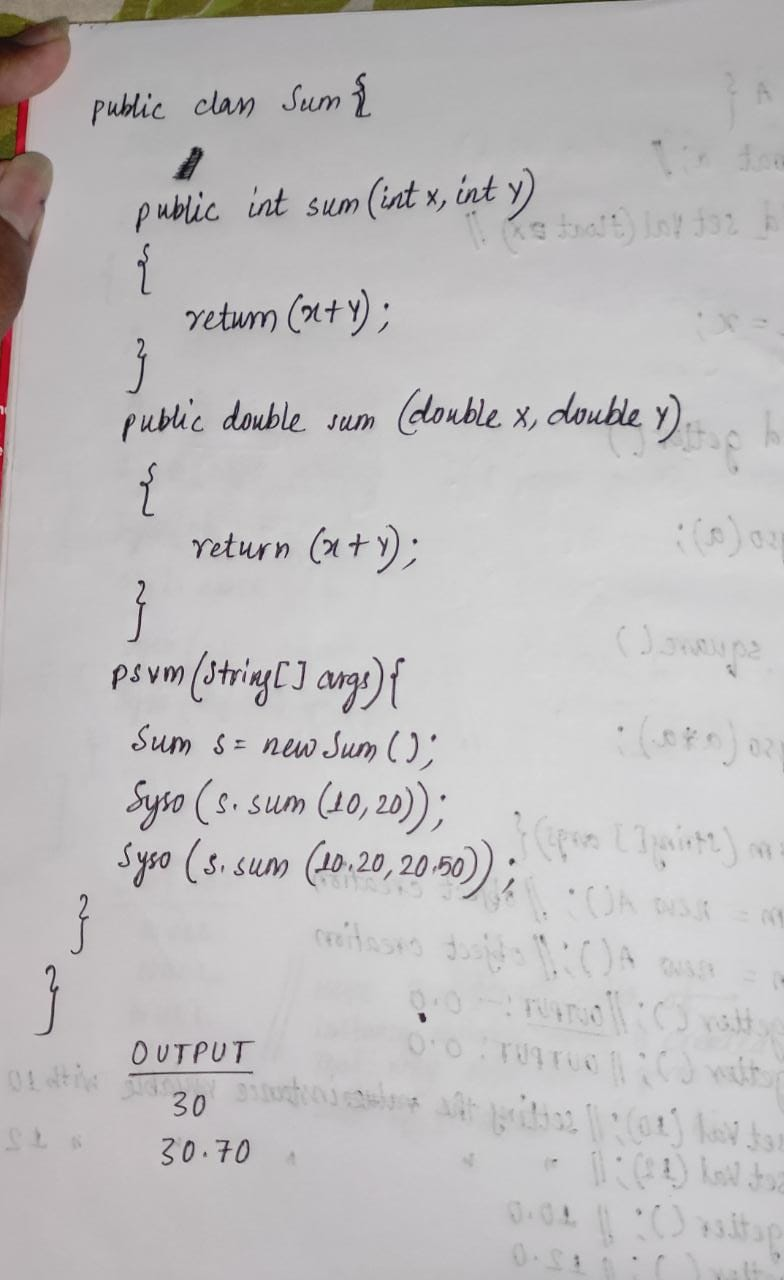 public class Sum {
public int sum (int x, int y)
{
return (x+y);
}
public double sum (double x, double y)
{
return (x+y);
}
psvm (String[] args) {
Sum s = new Sum ();
Syso (s.sum (10,20));
Syso (s.sum (10.20, 20.50));
}
}
OUTPUT
30
30.70